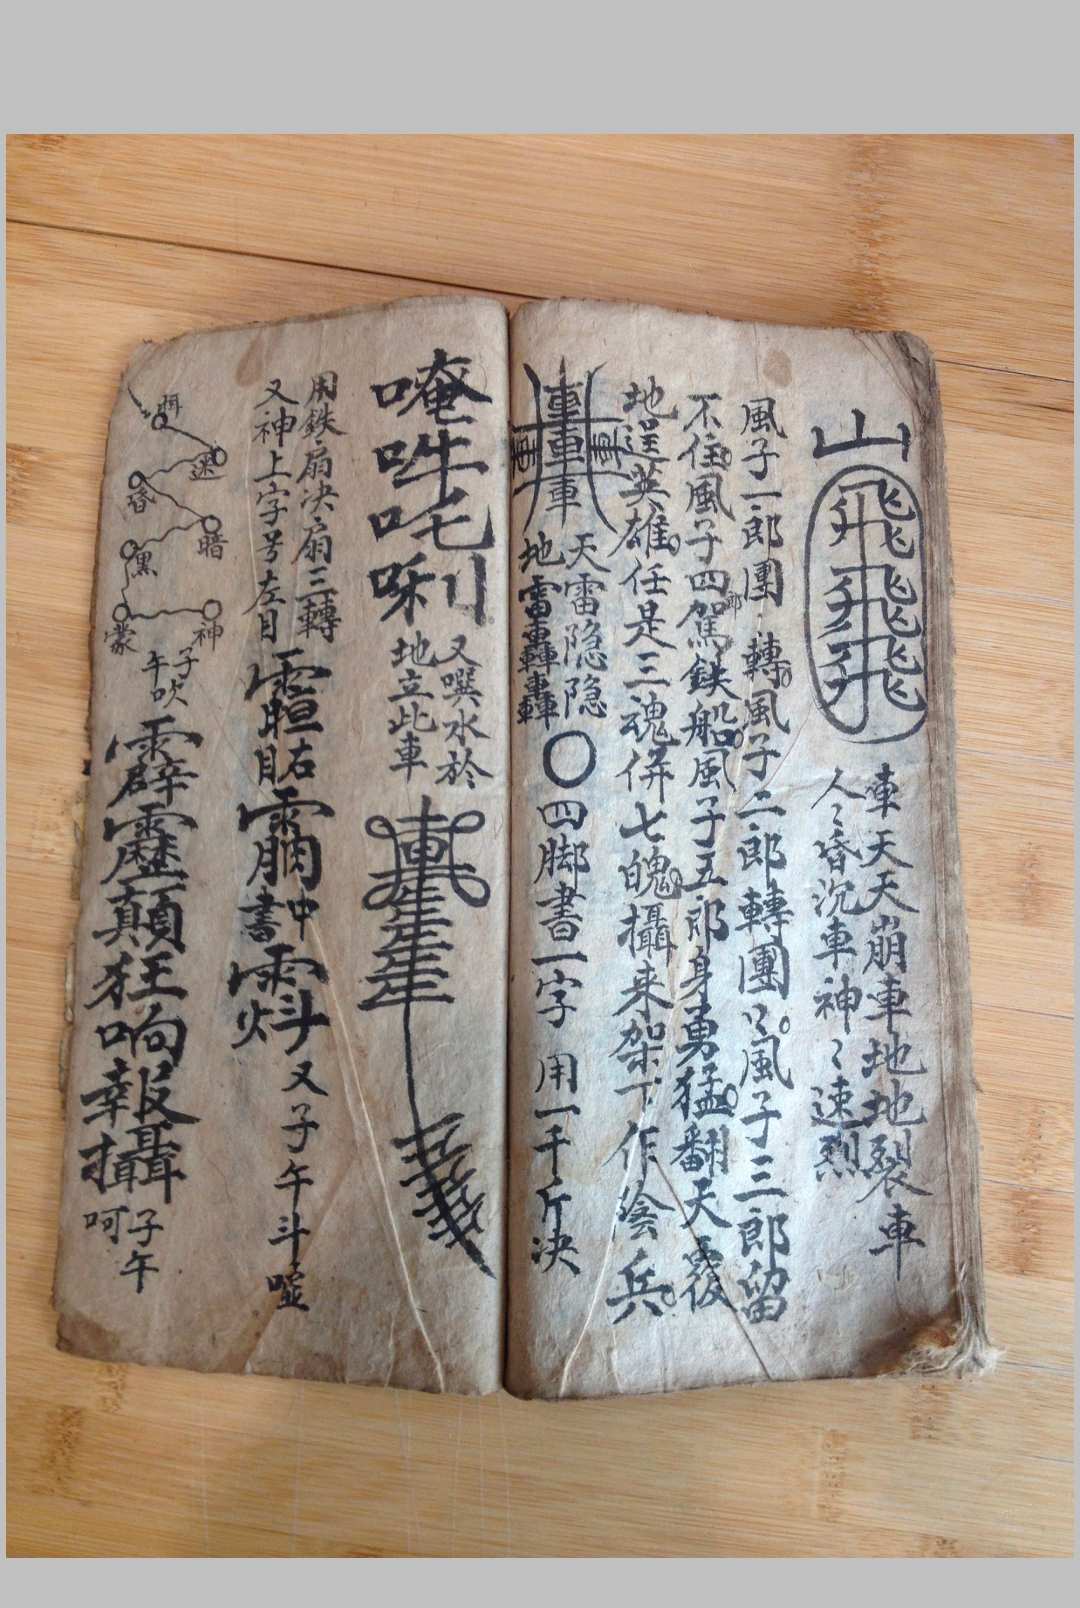 山
飛飛飛
車天天崩車地地裂車
人〻昏沉車神〻速烈
風子一郎團〻轉風子二郎轉團〻風子三郎留
不住風子四郎駕鉄船風子五郎身勇猛翻天覆
地逞英雄任是三魂併七魄攝来架下作陰兵
車車車
天雷隐隐
地雷轟轟
四脚書一字 用一千斤决
唵吽吒唎
又噀水於
地立此車
用鉄扇决扇三轉
又神上字号左目
右目
中書
又子午斗噓
迷
昏
暗
黑
蒙
神
子午吹
霹靂顛狂响報攝
子午呵